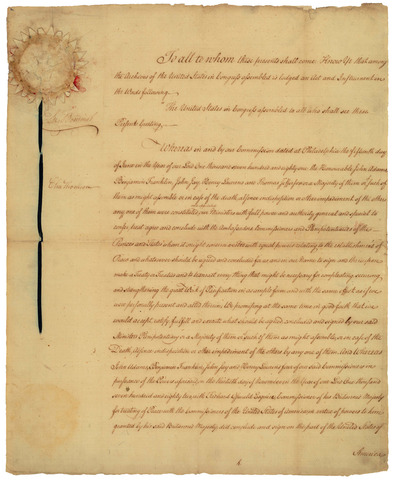 To all to whom these presents shall come Know Ye that among
the Archives of the United States in Congress assembled is lodged an Act and Instrument in
the Words following.
The United States in Congress assembled to all who shall see these
Presents Greeting.
Whereas in and by our Commission dated at Philadelphia the fifteenth day
of June in the Year of our Lord One thousand seven hundred and eighty one the Honorable John Adams
Benjamin Franklin John Jay Henry Laurens and Thomas Jefferson or a Majority of them or of such of
them as might assemble or in case of the death absence indisposition or other impediment of the others
any one of them were constituted our Ministers with full power and authority general and special to
confer treat agree and conclude with the Ambassadors Commissioners and Plenipotentiaries of the
Princes and States whom it might concern vested with equal powers relating to the reestablishment of
Peace and whatsoever should be agreed and concluded for us and in our Name to sign and thereupon
make a Treaty or Treaties and to transact every thing that might be necessary for compleating securing
and strengthening the great Work of Pacification in as ample form and with the same effect as if we
were personally present and acted therein We promising at the same time in good faith that we
would accept ratify fulfil and execute what should be agreed concluded and signed by our said
Ministers Plenipotentiary or a Majority of them or of such of them as might assemble or in case of the
Death absence indisposition or other impediment of the others by any one of them. And Whereas
John Adams, Benjamin Franklin, John Jay and Henry Laurens four of our said Commissioners in
pursuance of the Powers aforesaid on the thirtieth day of November in the Year of our Lord One thousand
seven hundred and eighty two with Richard Oswald Esquire Commissioner of his Britannic Majesty
for treating of Peace with the Commissioners of the United States of America in virtue of powers to him
granted by his said Britannic Majesty did conclude and sign on the part of the United States of
America